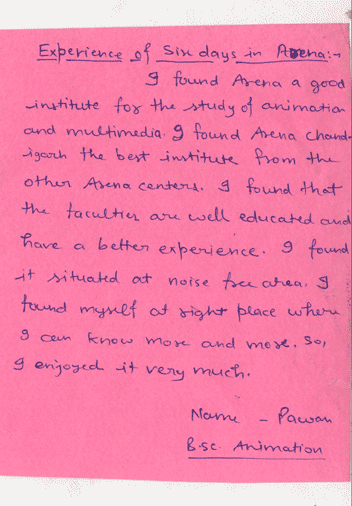 Experience of Six days in Arena:-
I found Arena a good
institute for the study of animation
and multimedia. I found Arena Chand-
igarh the best institute from the
other Arena centers. I found that
the faculties are well educated and
have a better experience. I found
it situated at noise free area. I
found myself at right place where
I can know more and more. So,
I enjoyed it very much.
Name - Pawan
B.Sc. Animation